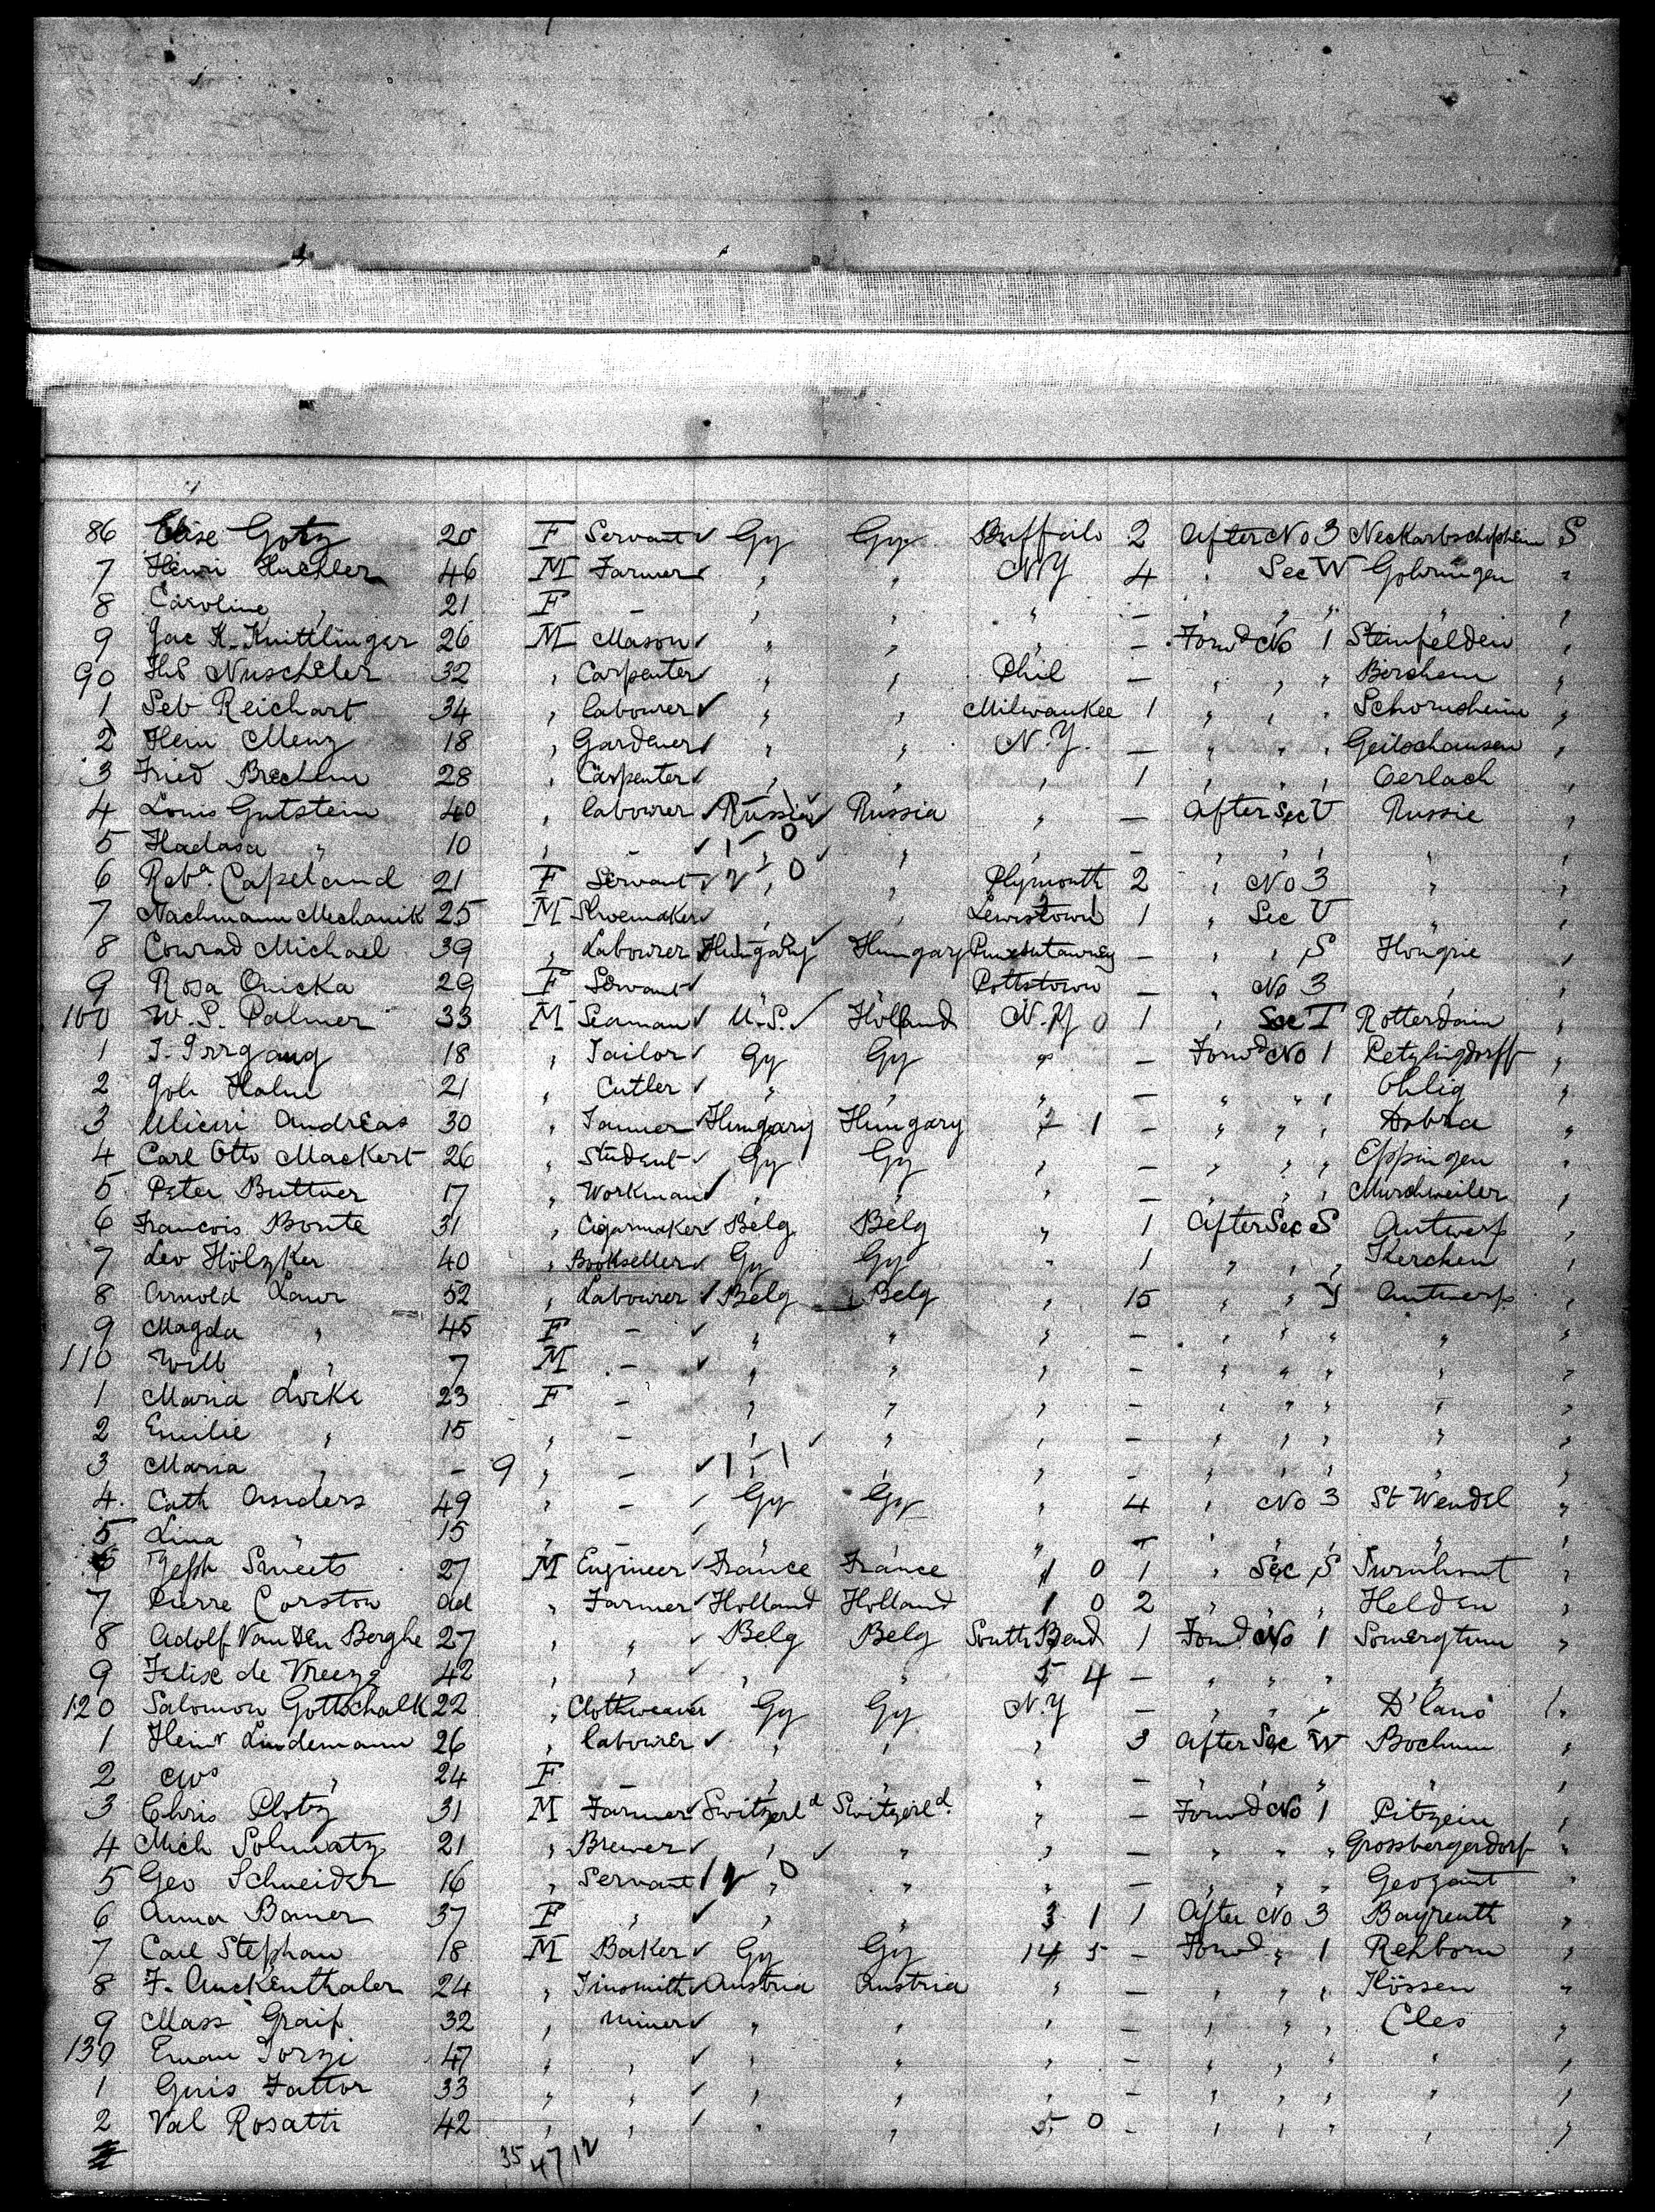 86 Elise Gotz 20 F Servant ✓ Gy Gy Buffalo 2 After No 3 Neckarbschofsheim S
7 Henri Huchler 46 M Farmer ✓ " " N.Y 4 " Sec W Gohringen "
8 Caroline " 21 F - " " " - " " " " "
9 Jac K. Knittlinger 26 M Mason ✓ " " " - Forwd No 1 Steinfelden "
90 Hs Nuscheler 32 " Carpenter " " Phil - " " " Berchem "
1 Seb Reichart 34 " labourer ✓ " " Milwaukee 1 " " " Schornsheim "
2 Hein Menz 18 " Gardener ✓ " " N.Y. - " " " Geilschausen "
3 Fried Brechlin 28 " Carpenter ✓ " " " 1 " " " Gerlach "
4 Louis Gutstein 40 " labourer ✓ Russia ✓ Russia " - After Sec V Russie "
5 Hadasa " 10 " - ✓ 1 0 " " - " " " " "
6 Reba. Capeland 21 F Servant ✓ 2 0 " Plymouth 2 " No 3 " "
7 Nachmann Mechanik 25 M Shoemaker ✓ " " Lewistown 1 " Sec V " "
8 Conrad Michael 39 " Labourer Hungary Hungary - " " S Hongrie "
9 Rosa Onicka 29 F Servant ✓ " " Pottstown - " No 3 " "
100 W. S. Palmer 33 M Seaman ✓ U.S. ✓ Holland N.Y 0 1 " Sec T Rotterdam "
1 J. Irrgang 18 " Tailor ✓ Gy Gy " - Forwd No 1 Petzlingdorff "
2 Joh Halm 21 " Cutler ✓ " " " - " " " Ohlig "
3 Ulicni Andreas 30 " Tanner Hungary Hungary 2 1 - " " " Dobra "
4 Carl Otto Mackert 26 " Student ✓ Gy Gy " - " " " Eppingen "
5 Peter Buttner 17 " Workman ✓ " " " - " " " Murchweiler "
6 Francois Bonte 31 " Cigarmaker ✓ Belg Belg " 1 After Sec S Antwerp "
7 Leo Hölzker 40 " Bookseller ✓ Gy Gy " 1 " " " Kerchen "
8 Arnold Laur 52 " Labourer ✓ Belg Belg " 15 " " Y Antwerp "
9 Magda " 45 F - ✓ " " " - " " " " "
110 Will " 7 M - ✓ " " " - " " " " "
1 Maria Locke 23 F - " " " - " " " " "
2 Emilie " 15 " - " " " - " " " " "
3 Maria " - 9 " - ✓ 1 1 " " - " " " " "
4 Cath Anders 49 " - ✓ Gy Gy " 4 " No 3 St Wendel "
5 Lina " 15 " - ✓ " " " - " " " " "
6 Jeph Smeets 27 M Engineer ✓ France France 1 0 1 " Sec S Turnhout "
7 Pierre Corston ad " Farmer ✓ Holland Holland 1 0 2 " " " Helden "
8 Adolf Van den Berghe 27 " " ✓ Belg Belg South Bend 1 Forwd No 1 Somergtum "
9 Felix de Vreeze 42 " " ✓ " " 5 4 - " " " " "
120 Salomon Gottschalk 22 " Clothweaver Gy Gy N.Y - " " " D'lano "
1 Heinr Lindemann 26 " labourer ✓ " " " 3 After Sec W Bochum "
2 " 24 F - " " " - " " " " "
3 Chris Plotz 31 M Farmer ✓ Switzerld Switzerld. " - Forwd No 1 Pitzein "
4 Mich Solmatz 21 " Brewer ✓ " ✓ " " - " " " Grossbergerdorf "
5 Geo Schneider 16 " Servant 1 2 0 " " - " " " Geozant "
6 Anna Bamer 37 F " ✓ " " 3 1 1 After No 3 Bayreuth "
7 Carl Stephan 18 M Baker ✓ Gy Gy 14 5 - Forwd " 1 Rehborn "
8 F. Auckenthaler 24 " Tinsmith ✓ Austria Austria " - " " " Hössen "
9 Mass Graif 32 " Miner ✓ " " " - " " " Cles "
130 Eman Torzi 47 " " ✓ " " " - " " " " "
1 Guis Fattor 33 " " ✓ " " " - " " " " "
2 Val Rosatti 42 " " ✓ " " 5 0 - " " " " "
35 47 12